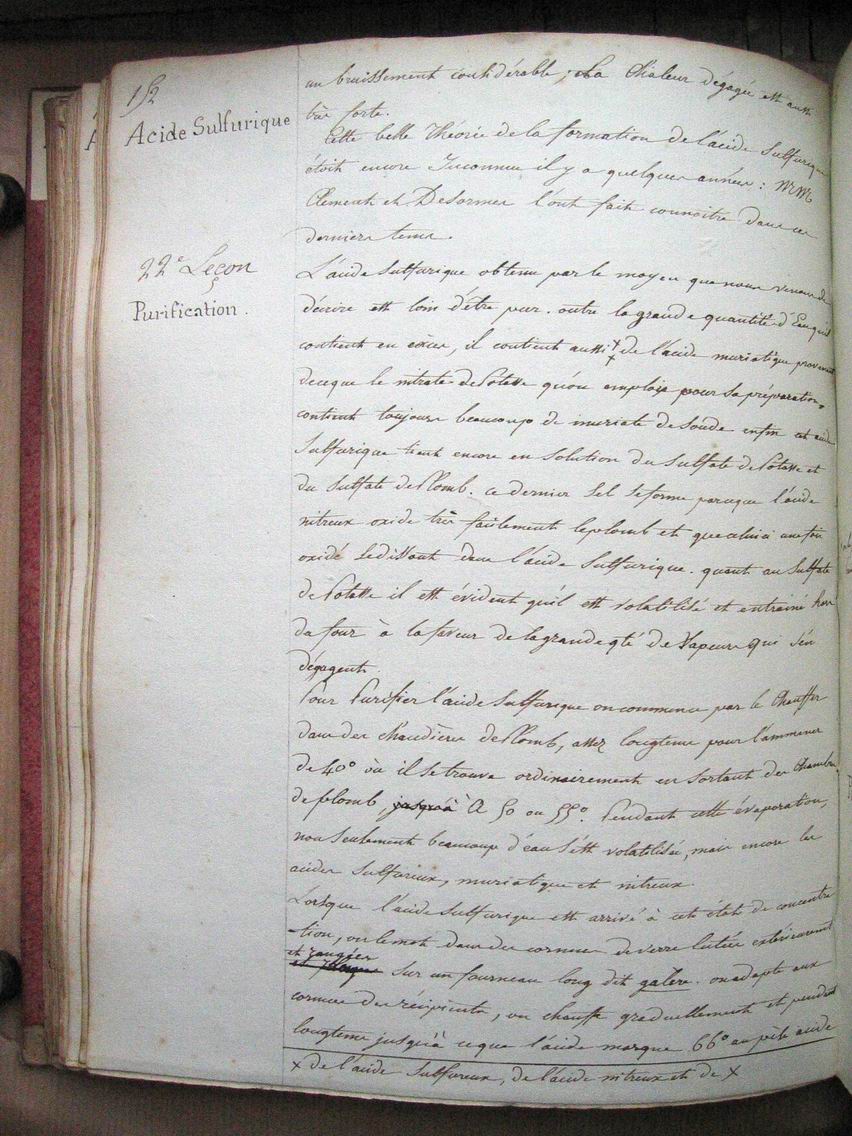 152
Acide Sulfurique
22e Leçon
Purification.
un bruissement considérable; La Chaleur dégagée est aussi
très forte.
Cette belle théorie de la formation de l'acide Sulfurique
étoit encore Inconnue il y a quelques années: MM
Clement et Desormes l'ont fait connoitre dans ces
derniers tems.
L'acide Sulfurique obtenu par le moyen que nous venons de
décrire est loin d'être pur. outre la grande quantité d'Eau qu'il
contient en excès, il contient aussi x de l'acide muriatique provenant
de ce que le nitrate de Potasse qu'on emploie pour sa préparation,
contient toujours beaucoup de muriate de Soude enfin cet acide
Sulfurique tient encore en solution du sulfate de Potasse et
du sulfate de Plomb. ce dernier Sel se forme parceque l'acide
nitreux oxide très facilement le plomb et que celui ci une fois
oxidé se dissout dans l'acide Sulfurique. quant au Sulfate
de Potasse il est évident qu'il est volatilisé et entrainé hors
du four à la faveur de la grande qté de Vapeurs qui s'en
dégagent.
Pour Purifier l'acide Sulfurique on commence par le Chauffer
dans des chaudières de Plomb, assez longtems pour l'ammener
de 40° où il se trouve ordinairement en sortant des Chambres
de plomb, jusqu'à A 50 ou 55°. Pendant cette évaporation,
non seulement beaucoup d'eau s'est volatilisée, mais encore les
acides sulfureux, muriatique et nitreux.
Lorsque l'acide Sulfurique est arrivé à cet état de concentra
-tion, on le met dans des cornues de verre lutées extérieurement
et rangées
sur un fourneau long dit galere. on adapte aux
cornues des récipients, on chauffe graduellement et pendant
longtems jusqu'à ce que l'acide marque 66° au pèse acide
x de l'acide Sulfureux, de l'acide nitreux et de x